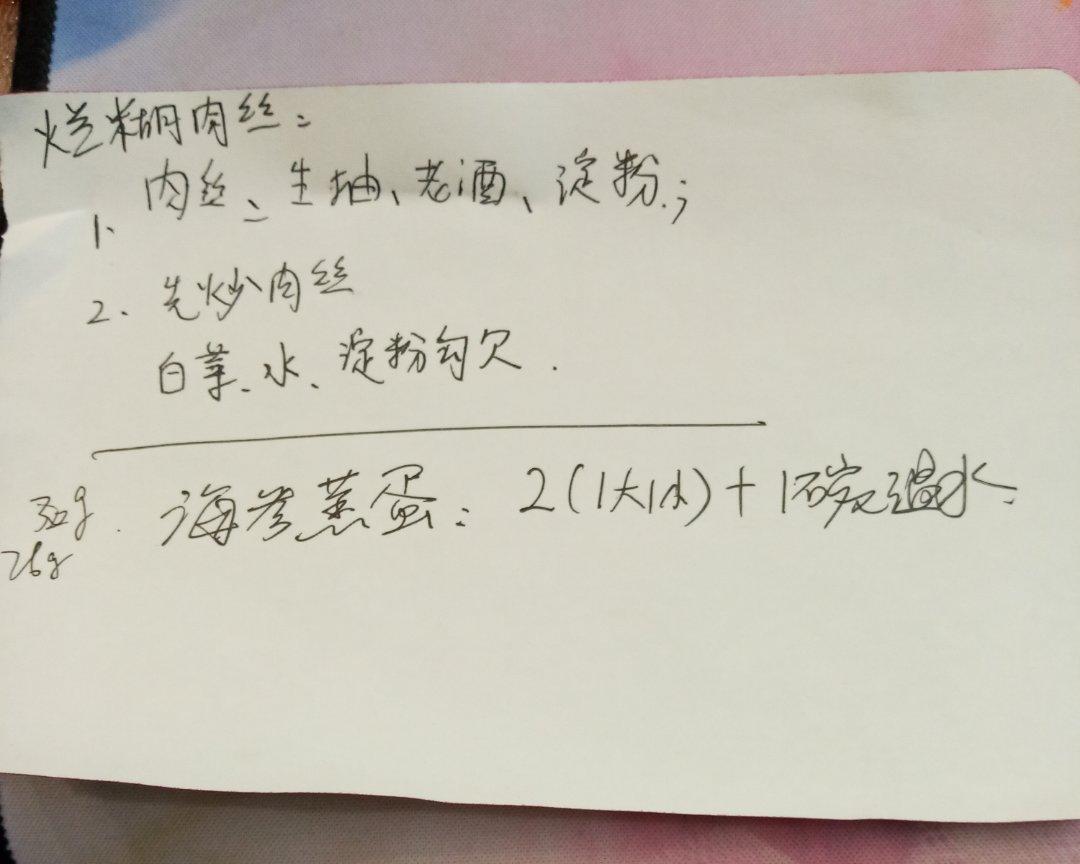 烂糊肉丝:
1. 肉丝、生抽、老酒、淀粉;
2. 先炒肉丝
白菜、水、淀粉勾欠.
海参蒸蛋: 2(1大1小)+1碗温水.
26g